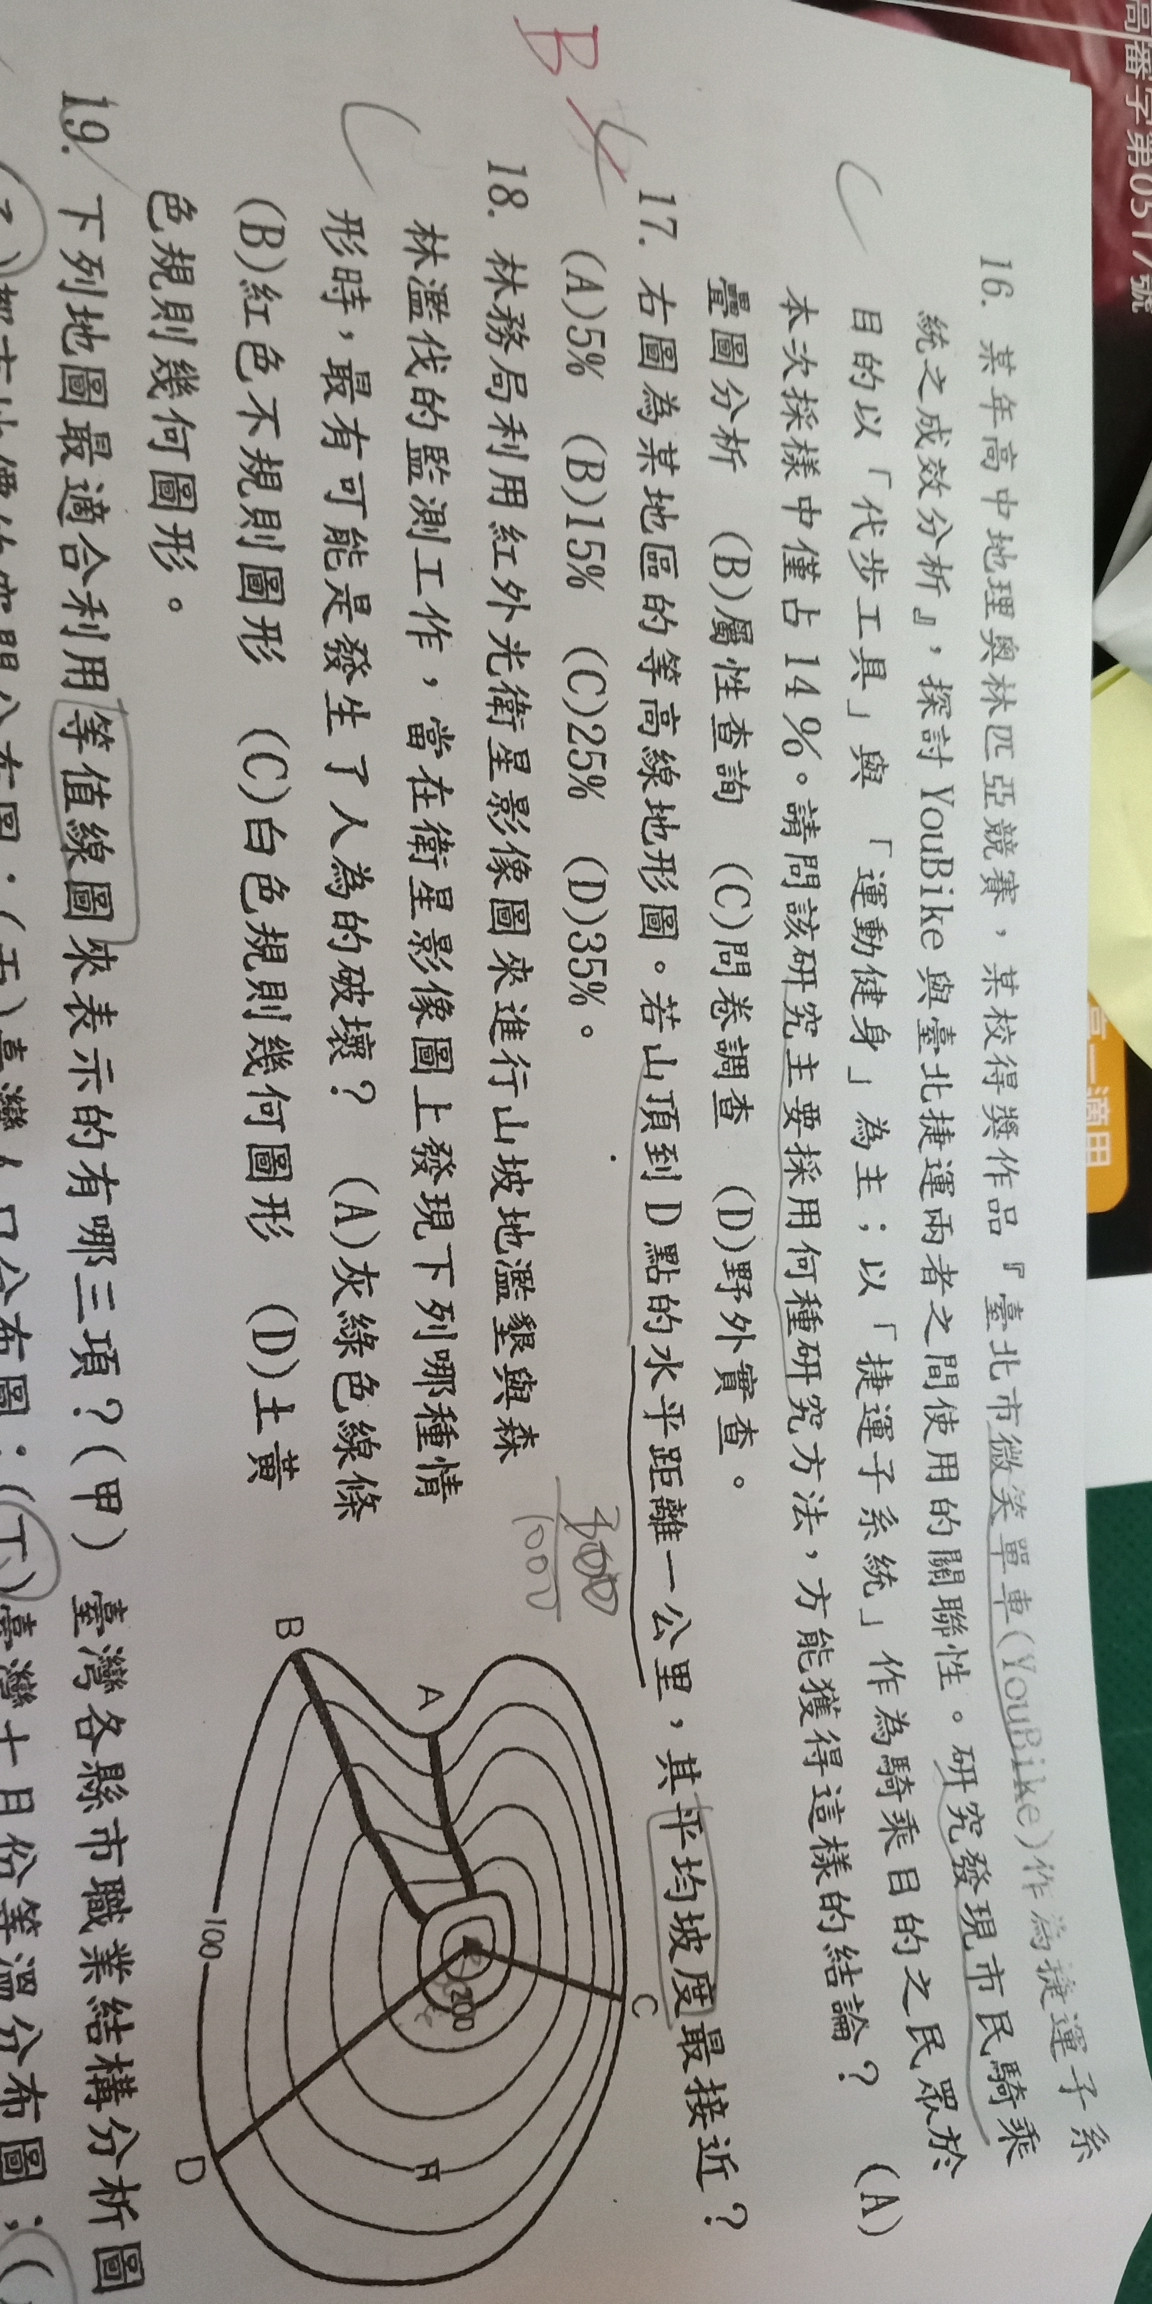 高審字第0517號
高一適用
16. 某年高中地理奧林匹亞競賽，某校得獎作品『臺北市微笑單車(YouBike)作為捷運子系
統之成效分析』，探討YouBike與臺北捷運兩者之間使用的關聯性。研究發現市民騎乘
目的以「代步工具」與 「運動健身」為主；以「捷運子系統」作為騎乘目的之民眾於
本次採樣中僅占14%。請問該研究主要採用何種研究方法，方能獲得這樣的結論？ (A)
疊圖分析 (B)屬性查詢 (C)問卷調查 (D)野外實查。
B
17. 右圖為某地區的等高線地形圖。若山頂到D點的水平距離一公里，其平均坡度最接近？
(A)5% (B)15% (C)25% (D)35%。
1000
18. 林務局利用紅外光衛星影像圖來進行山坡地濫墾與森
林濫伐的監測工作，當在衛星影像圖上發現下列哪種情
形時，最有可能是發生了人為的破壞？ (A)灰綠色線條
(B)紅色不規則圖形 (C)白色規則幾何圖形 (D)土黃
色規則幾何圖形。
A
B
C
D
甲
100
200
19. 下列地圖最適合利用等值線圖來表示的有哪三項？(甲) 臺灣各縣市職業結構分析圖